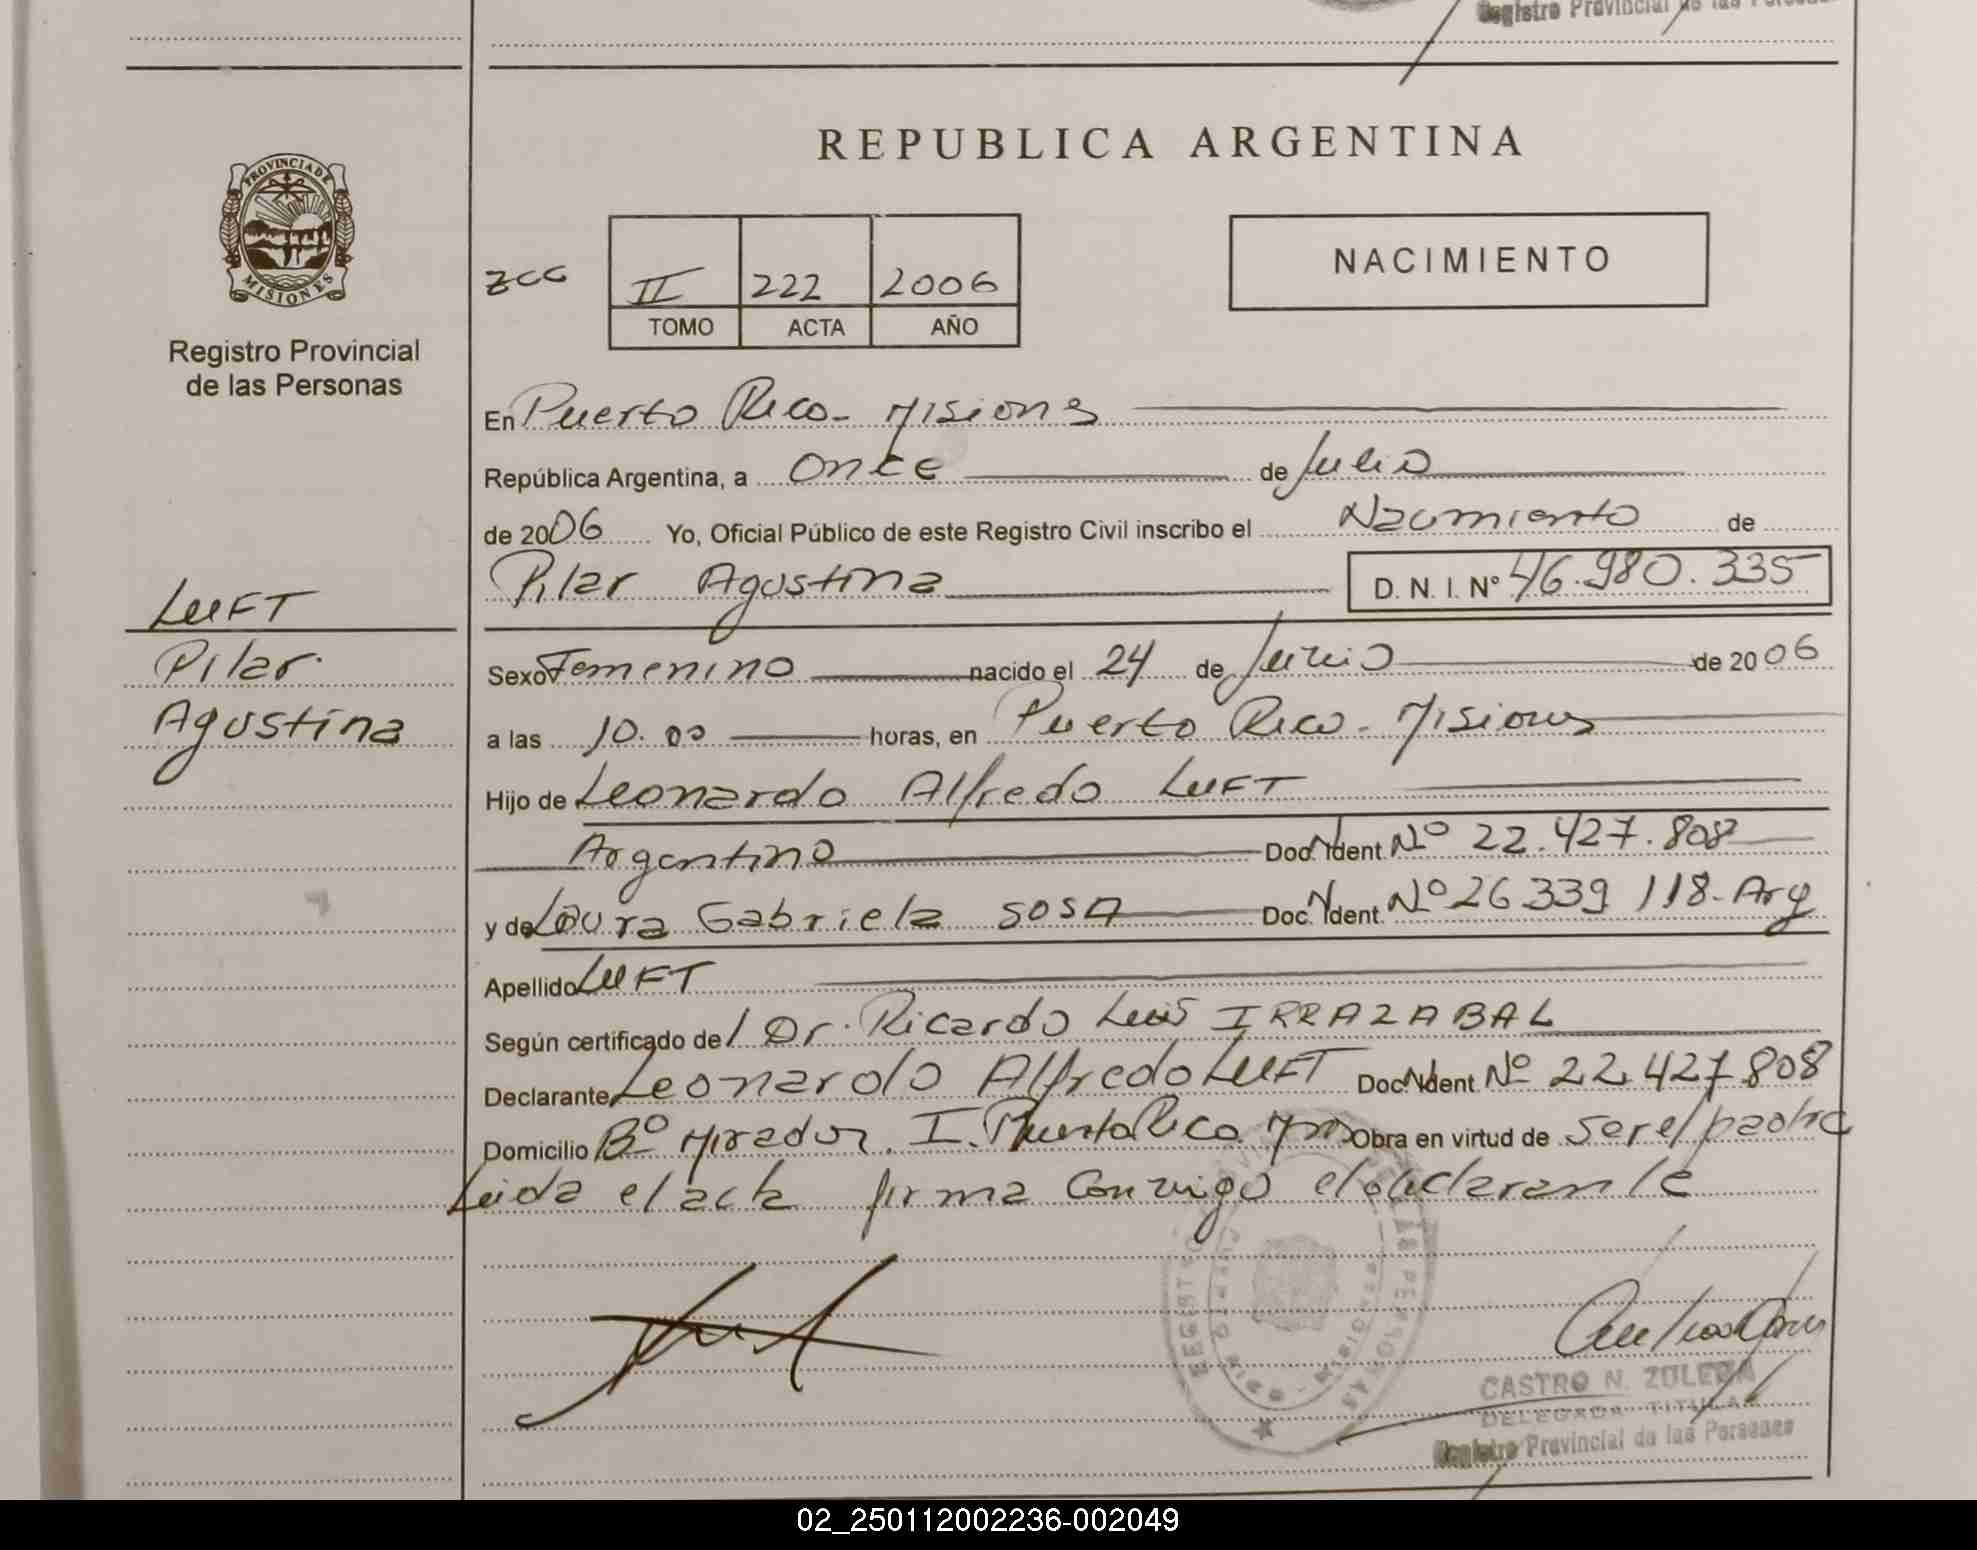 Registro Provincial de las Personas
REPUBLICA ARGENTINA
PROVINCIA DE
MISIONES
Registro Provincial
de las Personas
II 222 2006
TOMO ACTA AÑO
NACIMIENTO
En Puerto Rico - Misiones
República Argentina, a once de Julio
de 2006 Yo, Oficial Público de este Registro Civil inscribo el Nacimiento de
Pilar Agustina D. N. I. Nº 46.980.335
LUFT
Pilar
Agustina
Sexo Femenino nacido el 24 de Junio de 2006
a las 10.00 horas, en Puerto Rico - Misiones
Hijo de Leonardo Alfredo LUFT
Argentino Doc. Ident. Nº 22.427.808
y de Laura Gabriela SOSA Doc. Ident. Nº 26 339 118 - Arg
Apellido LUFT
Según certificado del Dr. Ricardo Luis IRRAZABAL
Declarante Leonardo Alfredo LUFT Doc. Ident. Nº 22.427.808
Domicilio Bº Mirador. I. Puerto Rico Obra en virtud de ser el padre
Leida el acta firma conmigo el declarante
CASTRO N. ZULEMA
DELEGADA TITULAR
Registro Provincial de las Personas
02_250112002236-002049